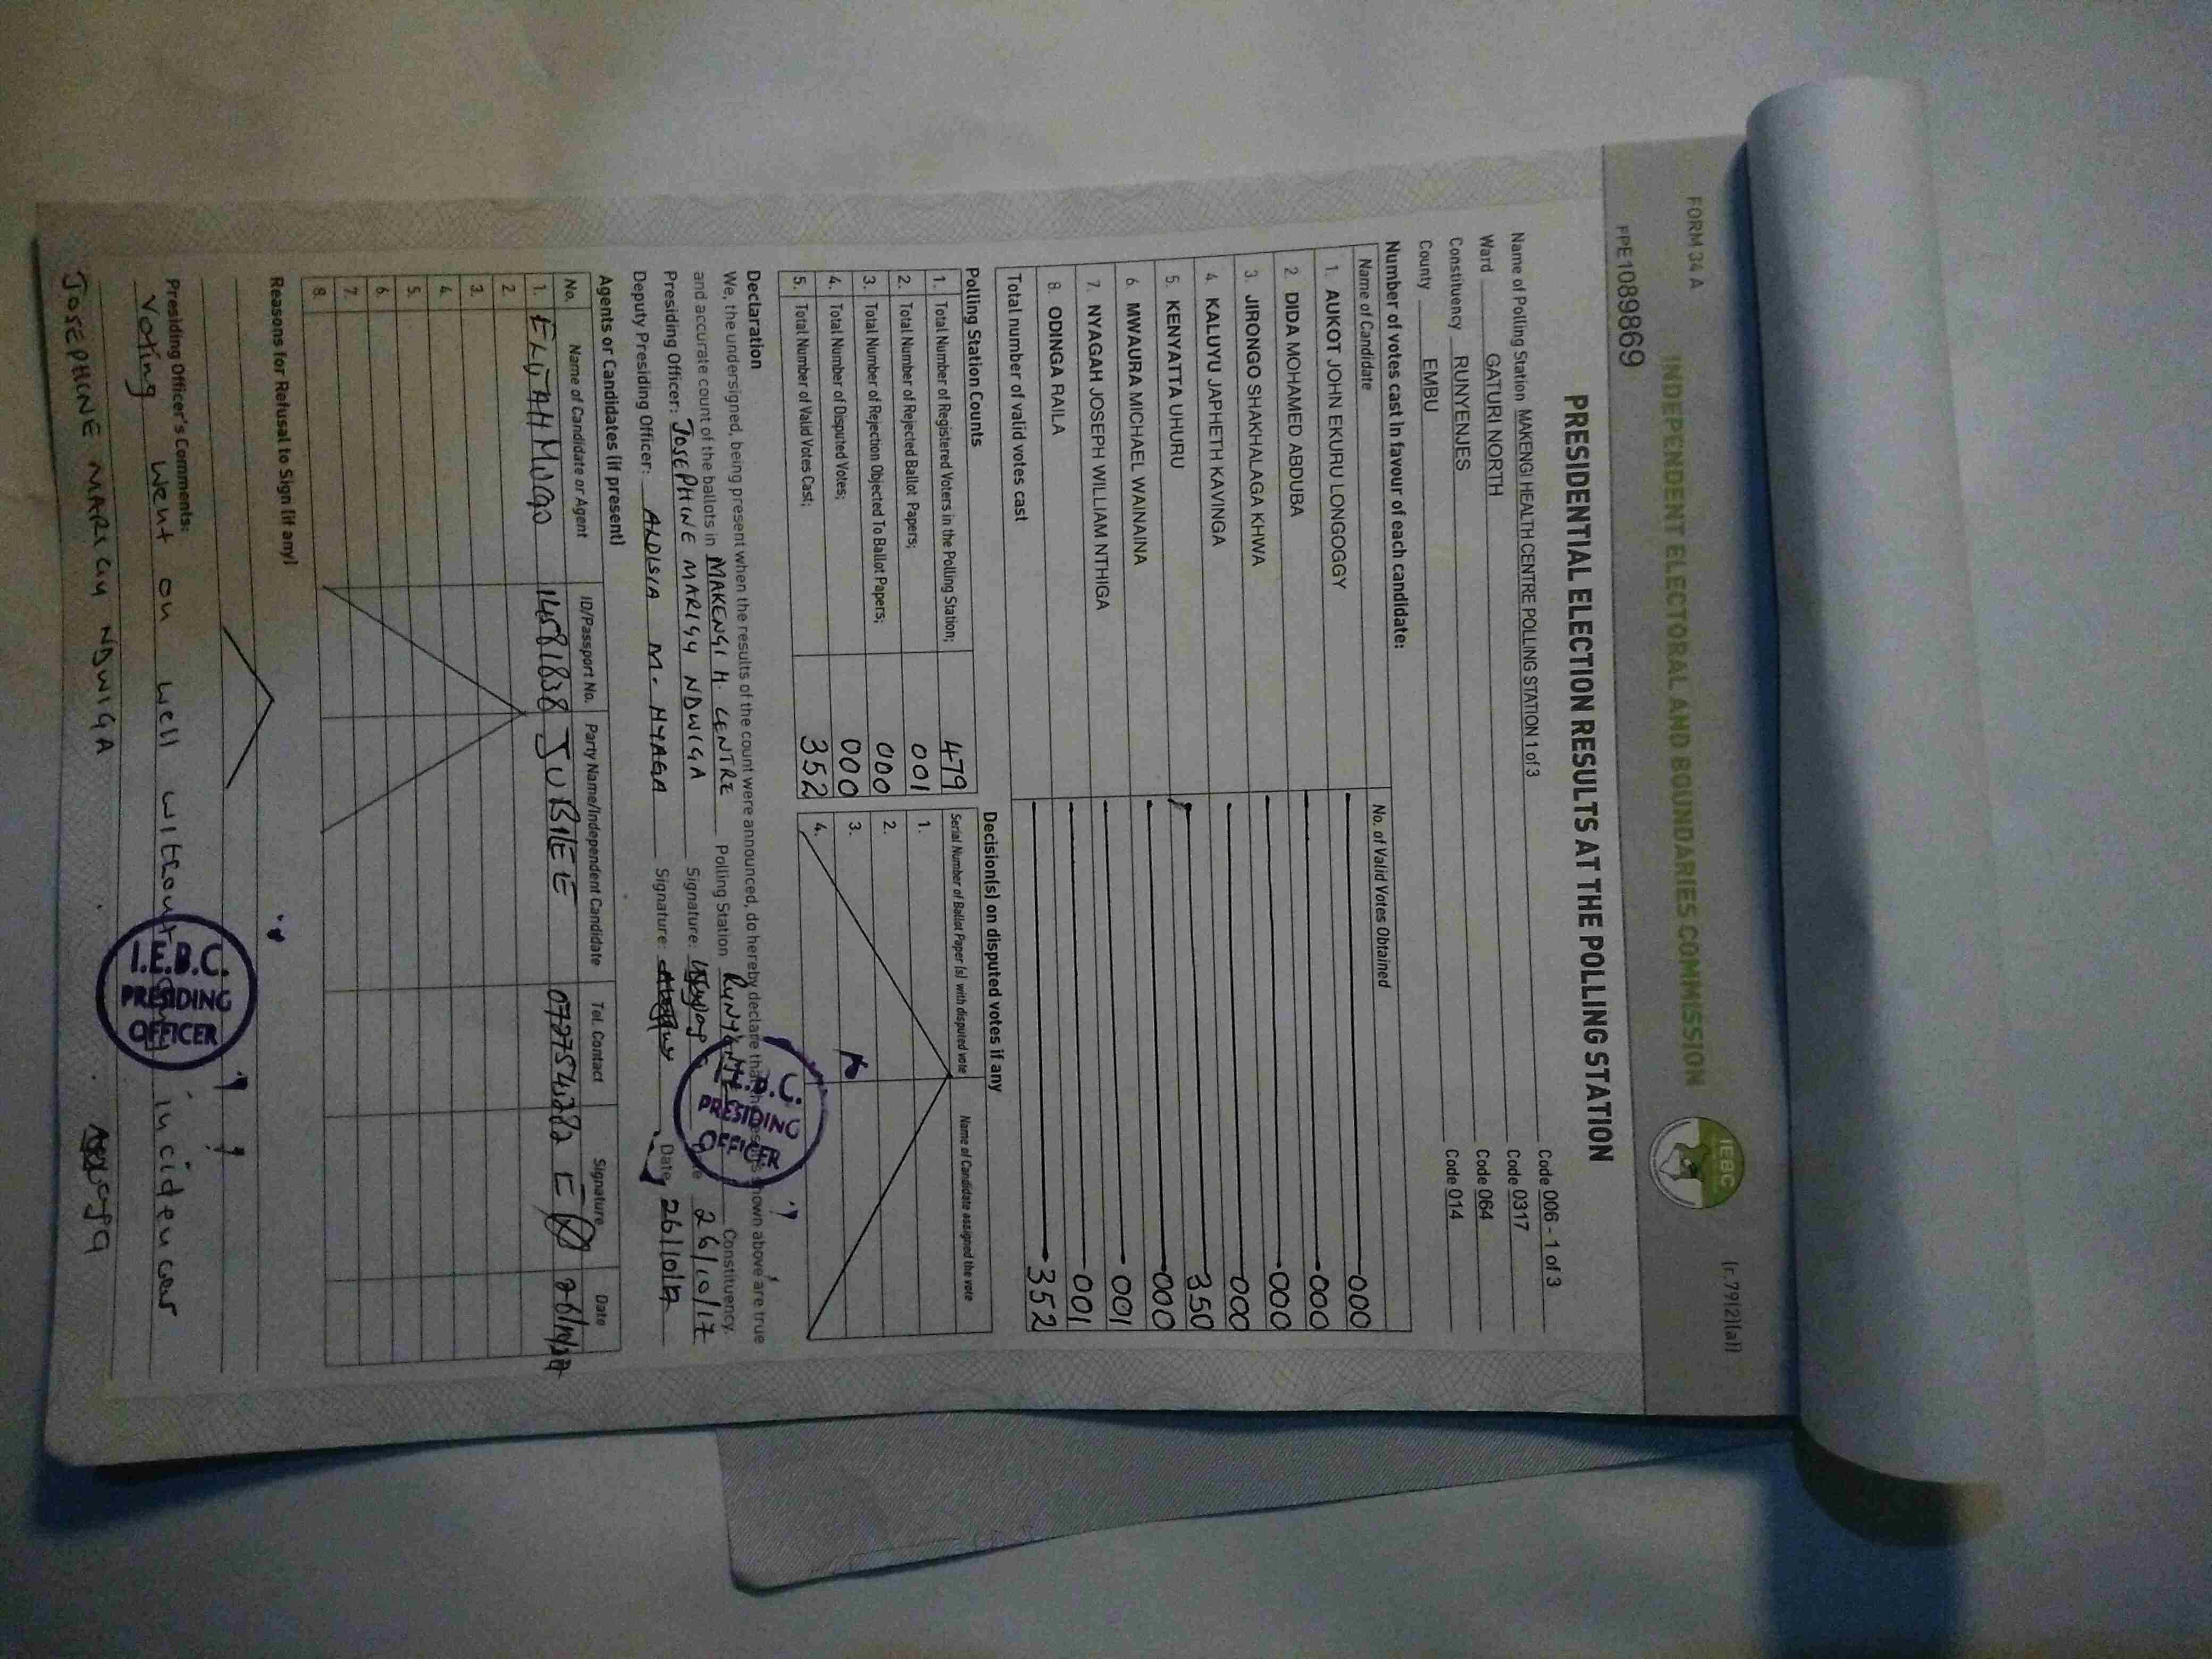 FORM 34 A
(r.79(2)(a))
INDEPENDENT ELECTORAL AND BOUNDARIES COMMISSION
IEBC
FPE1089869
PRESIDENTIAL ELECTION RESULTS AT THE POLLING STATION
Name of Polling Station MAKENGI HEALTH CENTRE POLLING STATION 1 of 3 Code 006 - 1 of 3
Ward GATURI NORTH Code 0317
Constituency RUNYENJES Code 064
County EMBU Code 014
Number of votes cast in favour of each candidate:
Name of Candidate No. of Valid Votes Obtained
1. AUKOT JOHN EKURU LONGOGGY 000
2. DIDA MOHAMED ABDUBA 000
3. JIRONGO SHAKHALAGA KHWA 000
4. KALUYU JAPHETH KAVINGA 000
5. KENYATTA UHURU 350
6. MWAURA MICHAEL WAINAINA 000
7. NYAGAH JOSEPH WILLIAM NTHIGA 001
8. ODINGA RAILA 001
Total number of valid votes cast 352
Polling Station Counts
1. Total Number of Registered Voters in the Polling Station; 479
2. Total Number of Rejected Ballot Papers; 001
3. Total Number of Rejection Objected To Ballot Papers; 000
4. Total Number of Disputed Votes; 000
5. Total Number of Valid Votes Cast; 352
Decision(s) on disputed votes if any
Serial Number of Ballot Paper (s) with disputed vote Name of Candidate assigned the vote
1.
2.
3.
4.
Declaration
We, the undersigned, being present when the results of the count were announced, do hereby declare that the results shown above are true
and accurate count of the ballots in MAKENGI H. CENTRE Polling Station Constituency.
Presiding Officer: JOSEPHINE MARIGU NDWIGA Signature: Date 26/10/17
Deputy Presiding Officer: ALOISIA M. NYAGA Signature: Date 26/10/17
I.E.B.C.
PRESIDING
OFFICER
Agents or Candidates (if present)
No. Name of Candidate or Agent ID/Passport No. Party Name/Independent Candidate Tel. Contact Signature Date
1. ELIJAH 14581838 JUBILEE
2.
3.
4.
5.
6.
7.
8.
Reasons for Refusal to Sign (if any)
Presiding Officer's Comments:
Voting went on well without
I.E.B.C.
PRESIDING
OFFICER
JOSEPHINE MARIGU NDWIGA